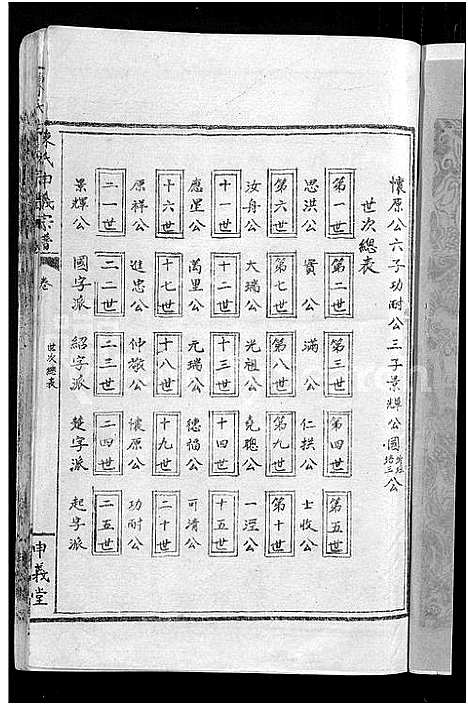 懷原公六子功耐公三子景輝公國公
世次總表
第一世 第二世 第三世 第四世 第五世
思洪公 實公 滿公 仁拱公 士收公
第六世 第七世 第八世 第九世 第十世
汝舟公 大瑞公 光祖公 堯聰公 一涇公
十一世 十二世 十三世 十四世 十五世
應星公 萬里公 元瑞公 德恼公 可清公
十六世 十七世 十八世 十九世 二十世
原祥公 進忠公 仲敬公 懷原公 功耐公
二一世 二二世 二三世 二四世 二五世
景輝公 國字派 紹字派 楚字派 起字派
陳氏申義宗譜
卷
世次總表
申義堂